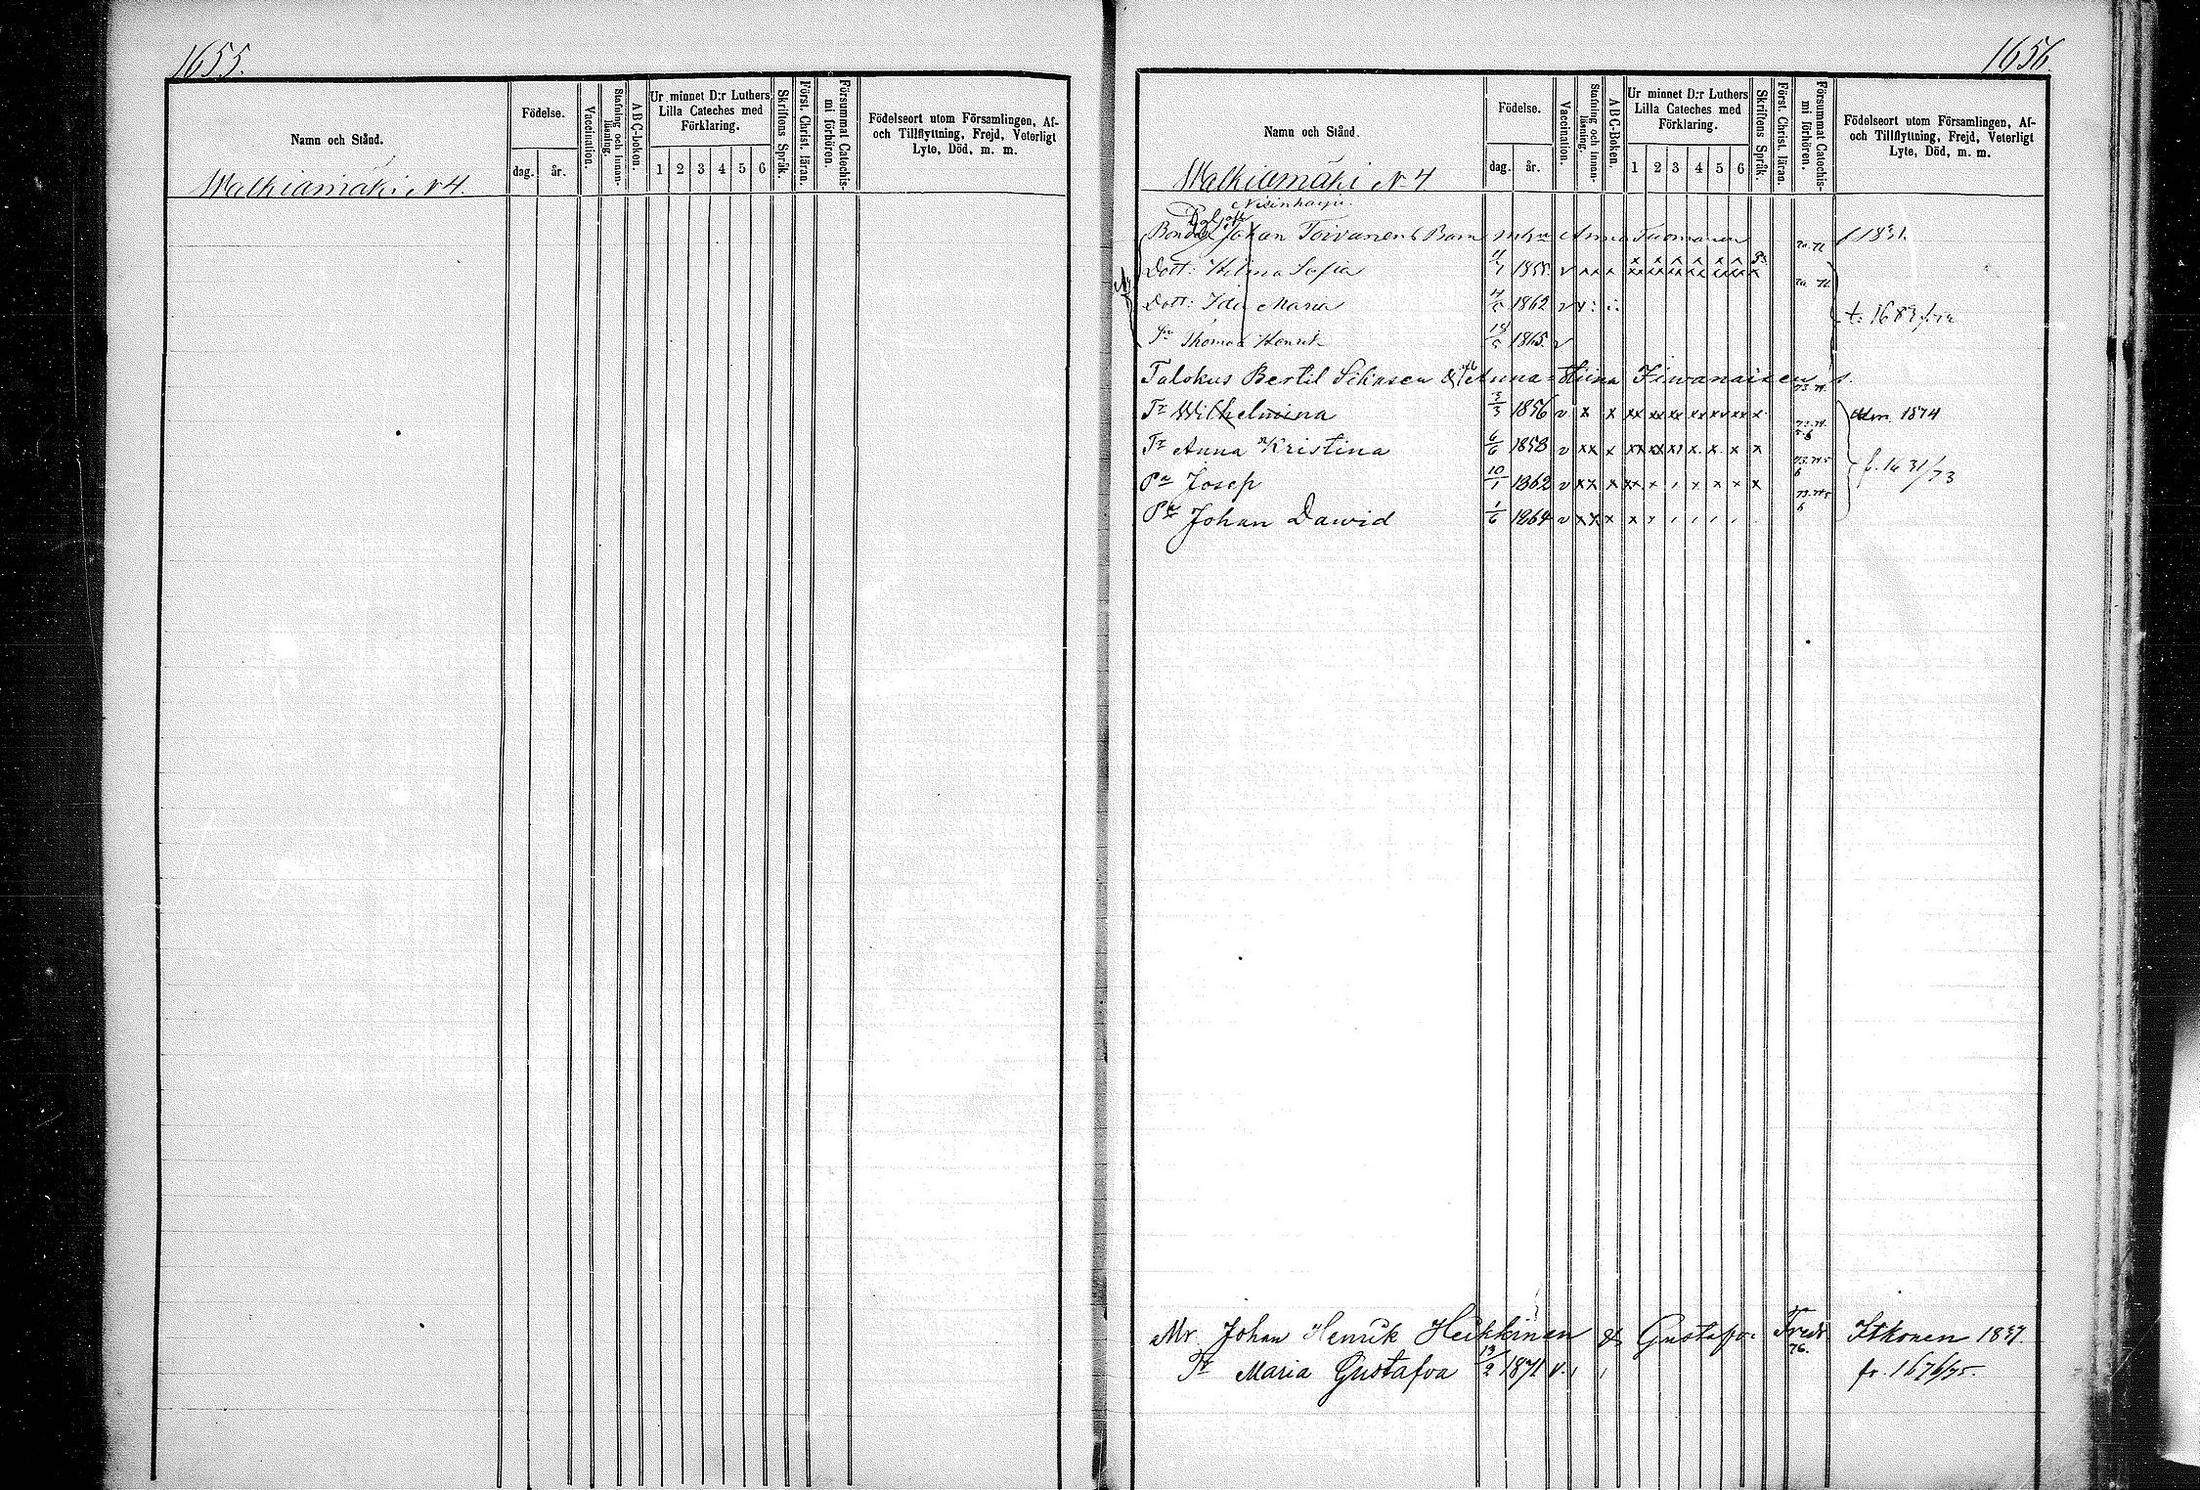 1655.
Namn och Stånd.
Födelse.
dag.
år.
Vaccination.
Stafning och innan-
läsning.
ABC-boken.
Ur minnet D:r Luthers
Lilla Cateches med
Förklaring.
1 2 3 4 5 6
Skriftens Språk.
Först. Christ. läran.
Försummat Catechis-
mi förhören.
Födelseort utom Församlingen, Af-
och Tillflyttning, Frejd, Veterligt
Lyte, Död, m. m.
Walkiamäki N 4.
1656.
Namn och Stånd.
Födelse.
dag.
år.
Vaccination.
Stafning och innan-
läsning.
ABC-Boken.
Ur minnet D:r Luthers
Lilla Cateches med
Förklaring.
1 2 3 4 5 6
Skriftens Språk.
Först. Christ. läran.
Försummat Catechis-
mi förhören.
Födelseort utom Församlingen, Af-
och Tillflyttning, Frejd, Veterligt
Lyte, Död, m. m.
Walkiamäki N 4
Johan Toivanens Barn Anna Tuomanen 1831.
Dott: Helena Sofia 1855
Dott: Ida Maria 4/5 1862 t: 1683
Thomas Henrik 1865 v
Talokus Bertil Sihvosen & Anna Stiina Ziwanaisen
Tr Wilhelmina 3/3 1856 v x x xx xx xx xx xx xx x 1874
Tr Anna Kristina 6/6 1858 v xx x
Pn Josep 10/1 1862 v xx x f. 1631/73
Pn Johan Dawid 1/6 1864 v xx x
Mr Johan Henrik Heikkinen & Gustafva Fredr Itkonen 1837.
Tr Maria Gustafva 13/2 1871 v. 76. fr. 1676/75.